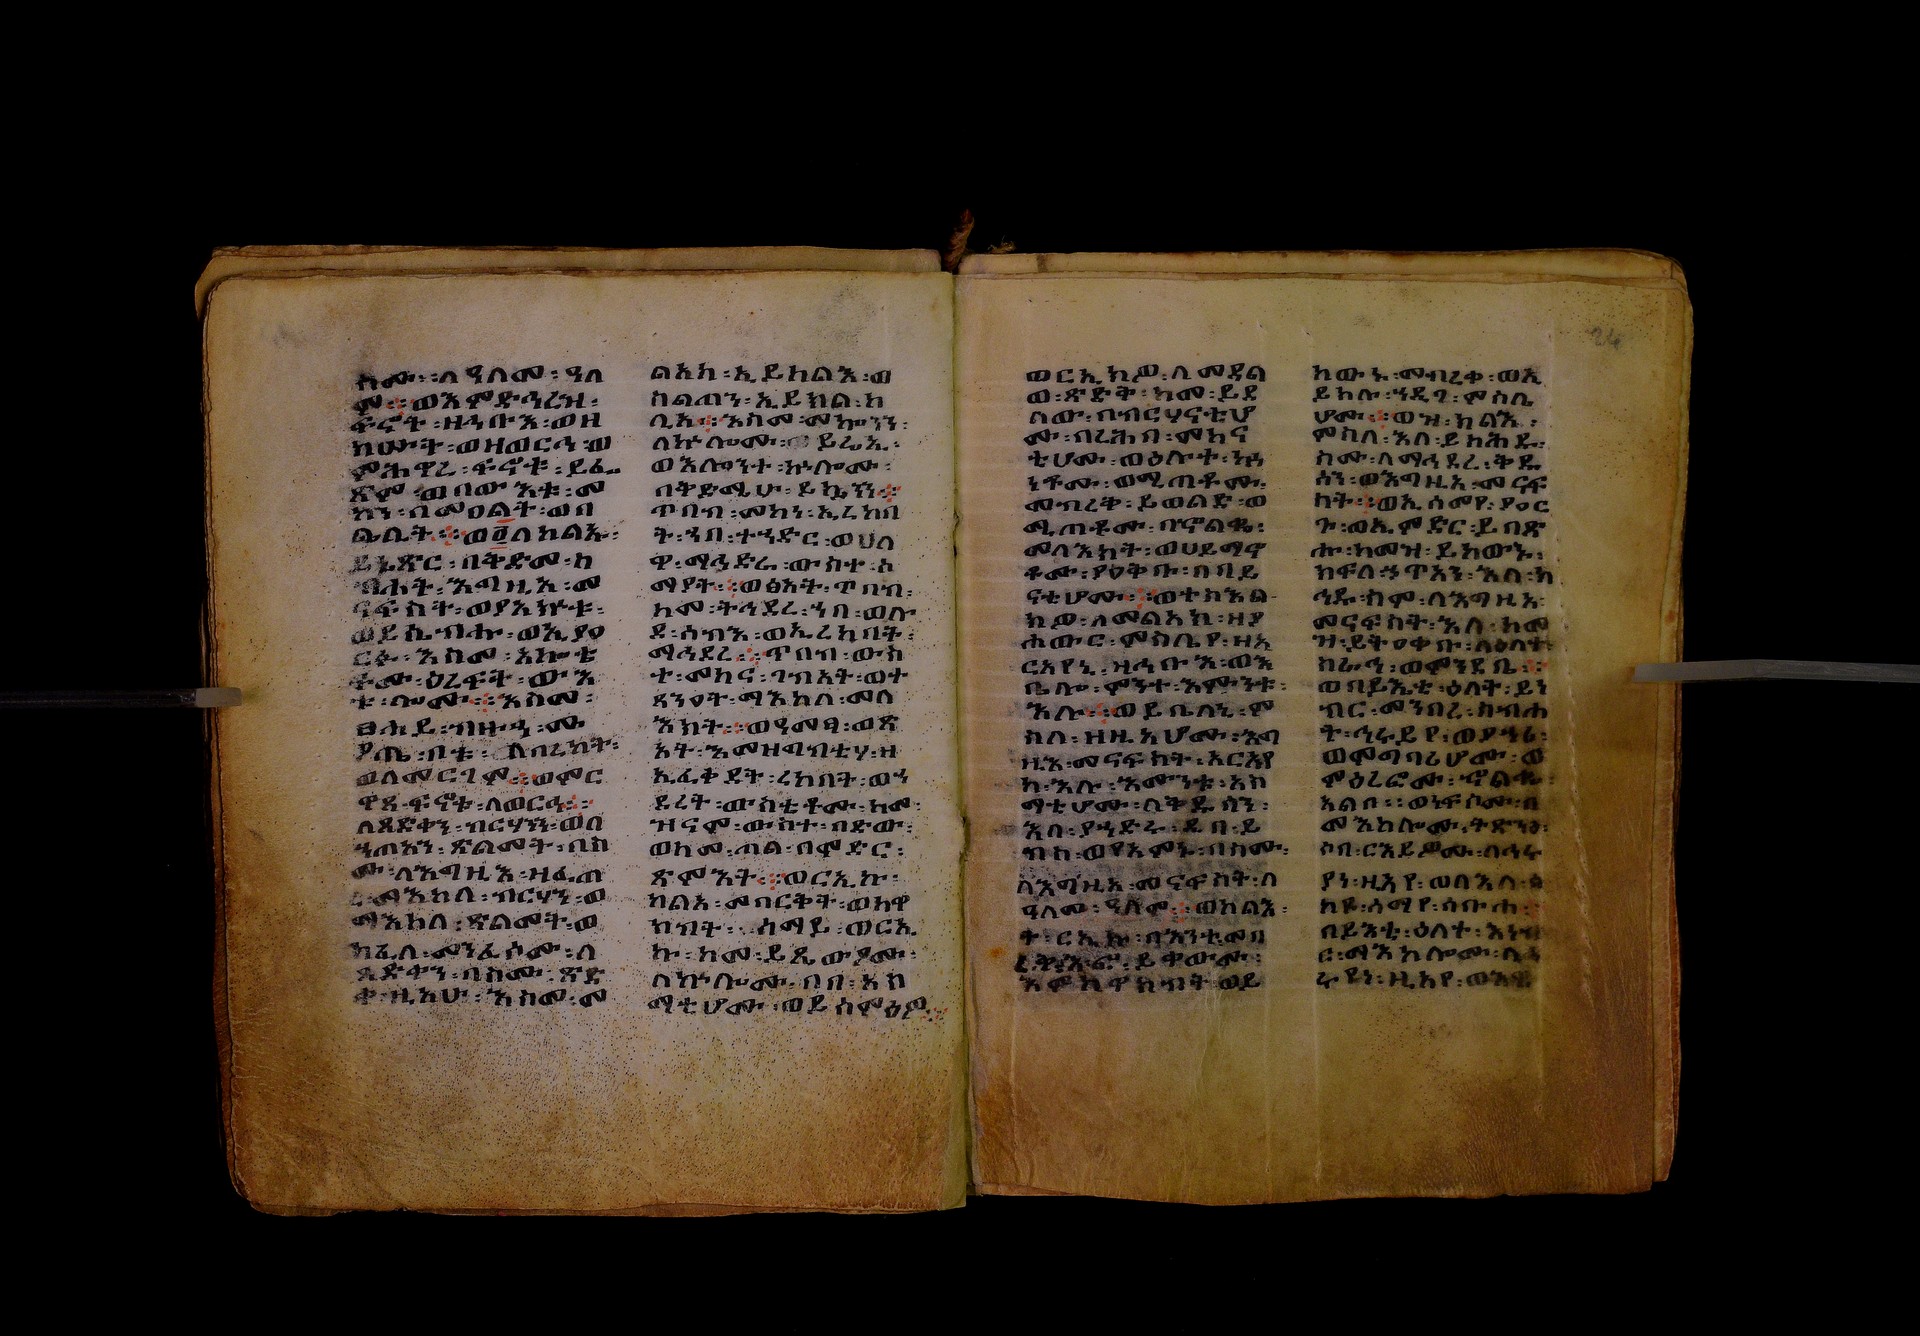 ስሙ፡ለዓለመ፡ዓለ
ም፨ወእምድኅረዝ፡
ፍኖት፡ዘኅቡእ፡ወዘ
ክሡት፡ወዘወርኅ፡ወ
ምሕዋረ፡ፍኖቱ፡ይፌ
ጽም፡በውእቱ፡መ
ካን፡በመዐልት፡ወበ
ሌሊት፨ወ፩ለካልኡ፡
ይኔጽር፡በቅድመ፡ስ
ብሐት፡እግዚአ፡መ
ናፍስት፡ወያአኵቱ፡
ወይሴብሑ፡ወኢያዐ
ርፉ፡እስመ፡አኰቴ
ቶሙ፡ዕረፍት፡ውእ
ቱ፡ሎሙ፨እስመ፡
ፀሐይ፡ብዙኅ፡ሙ
ያጤ፡ባቲ፡ለበረከት፡
ወለመርገም፨ወምር
ዋጸ፡ፍኖቱ፡ለወርኅ፨
ለጻድቃን፡ብርሃን፡ወለ
ኃጥአን፡ጽልመት፡በስ
ሙ፡ለእግዚእ፡ዘፈጠ
ረ፡ማእከለ፡ብርሃን፡ወ
ማእከለ፡ጽልመት፡ወ
ከፈለ፡መንፈሶሙ፡ለ
ጻድቃን፡በስሙ፡ጽድ
ቀ፡ዚአሁ፡እስመ፡መ
ልአክ፡ኢይከልእ፡ወ
ስልጣን፡ኢይክል፡ከ
ሊአ፨እስመ፡መኰንን፡
ለኵሎሙ፡ይሬኢ፡
ወእሎንተ፡ኵሎሙ፡
በቅድሜሁ፡ይኬንን፨
ጥበብ፡መካነ፡ኢረከበ
ት፡ኀበ፡ተኀድር፡ወሀለ
ዋ፡ማኅድራ፡ውስተ፡ሰ
ማያት፨ወፅአት፡ጥበብ፡
ከመ፡ትኅደረ፡ኀበ፡ውሉ
ደ፡ሰብእ፡ወኢረከበት፡
ማኅደረ፨ጥበብ፡ውስ
ተ፡መካና፡ገብአት፡ወተ
ጸንዐት፡ማእከለ፡መላ
እክት፨ወዓመፃ፡ወፅ
አት፡እመዛግብቲሃ፡ዘ
ኢፈቀደት፡ረከበት፡ወኀ
ደረት፡ውስቴቶሙ፡ከመ፡
ዝናም፡ውስተ፡በድው፡
ወከመ፡ጠል፡በምድር፡
ጽምእት፨ወርኢኩ፡
ካልአ፡መባርቅት፡ወከዋ
ክብት፡ሰማይ፡ወርኢ
ኩ፡ከመ፡ይጼውዖሙ፡
ለኵሎሙ፡በበ፡አስ
ማቲሆሙ፡ወይሰምዕዎ፨
ወርኢክዎ፡ለመዳል
ወ፡ጽድቅ፡ከመ፡ይደ
ለው፡በብርሃናቲሆ
ሙ፡በረሕበ፡መካና
ቲሆሙ፡ወዕለተ፡ኵ
ነቶሙ፡ወሚጠቶሙ፡
መብረቅ፡ይወልድ፡ወ
ሚጠቶሙ፡በኆልቈ፡
መላእክት፡ወሀይማኖ
ቶሙ፡ያዐቅቡ፡በበይ
ናቲሆሙ፨ወተስእል
ክዎ፡ለመልአክ፡ዘየ
ሐውር፡ምስሌየ፡ዘአ
ርአየኒ፡ዘኅቡእ፡ወእ
ቤሎ፡ምንተ፡እሙንቱ፡
እሉ፨ወይቤለኒ፡ም
ስለ፡ዘዚአሆሙ፡እግ
ዚአ፡መናፍስት፡አርአየ
ከ፡እሉ፡እሙንቱ፡አስ
ማቲሆሙ፡ለቅዱሳን፡
እለ፡የኀድሩ፡ዲበ፡የ
ብስ፡ወየአምኑ፡በስሙ፡
ለእግዚአ፡መናፍስት፡ለ
ዓለመ፡ዓለም፨ወካልእ፡
ት፡ርኢኩ፡በእንቲ፡መባ
ረቅት፡እፎ፡ይቀውሙ፡
እምከዋክብት፡ወይ
ከውኑ፡መብረቀ፡ወኢ
ይክሉ፡ኀዲገ፡ምስሌ
ሆሙ፨ወዝ፡ካልእ፡
ምሳሌ፡እለ፡ይክሕዱ፡
ስሙ፡ለማኅደረ፡ቅዱ
ሳን፡ወእግዚአ፡መናፍ
ስት፨ወኢሰማየ፡ያዐር
ጉ፡ወኢምድር፡ይበጽ
ሑ፡ከመዝ፡ይከውኑ፡
ክፍለ፡ኃጥአን፡እለ፡ክ
ሕዱ፡ስም፡ለእግዚአ፡
መናፍስት፡እለ፡ከመ
ዝ፡ይትዐቀቡ፡ለዕለት፡
ስራኅ፡ወምንዳቤ፨
ወበይእቲ፡ዕለት፡ይነ
ብር፡መንበረ፡ስብሐ
ት፡ኅሩይየ፡ወያኀሪ፡
ወምግባሪሆሙ፡ወ
ምዕረፎሙ፡ኆልቈ፡
አልቦ፡ወነፍሶሙ፡በ
መእከሎሙ፡ትጸንዕ፡
ሶበ፡ርእይዎሙ፡ለኅሩ
ያነ፡ዚአየ፡ወለእለ፡ሰ
ከዩ፡ሰማየ፡ሰቡሐ፨
በይእቲ፡ዕለት፡አነብ
ር፡ማእከሎሙ፡ለኅ
ሩያነ፡ዚአየ፡ወእዌ